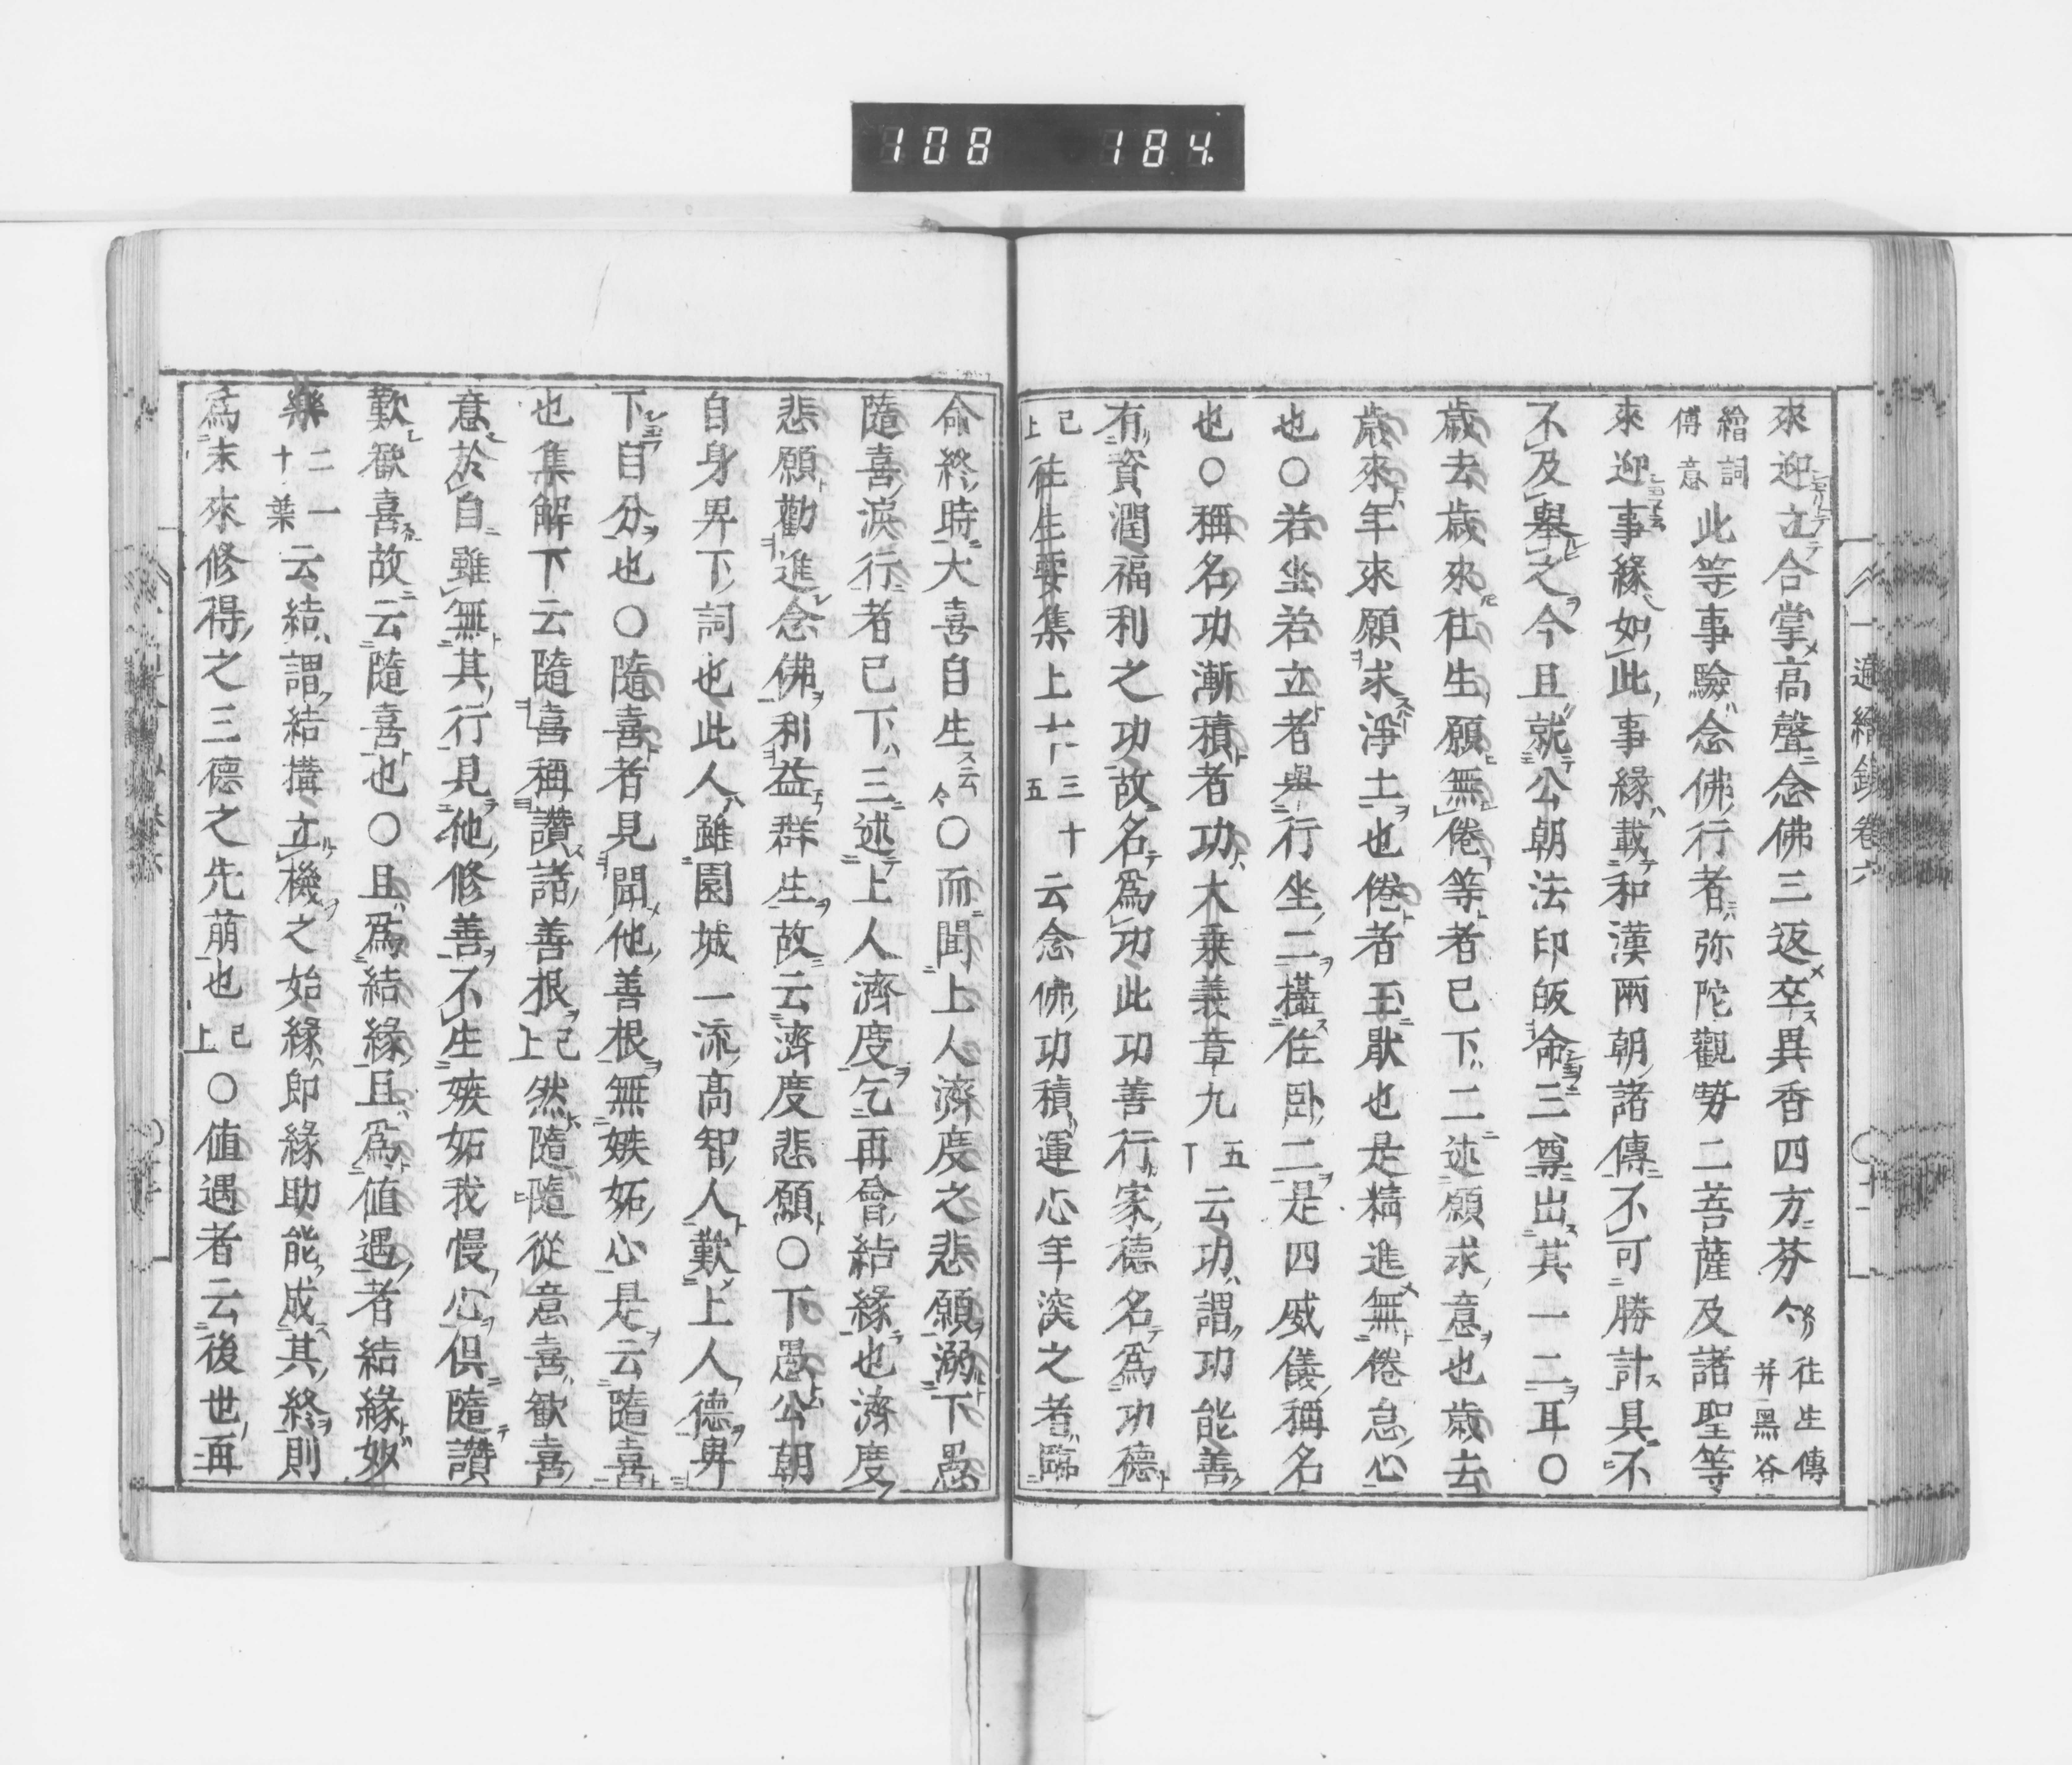 108 184
來迎立合掌高聲念佛三返卒異香四方芬々往生傳并黑谷
繪詞傳意此等事驗念佛行者弥陀觀勢二菩薩及諸聖等
來迎事緣如此事緣載和漢兩朝諸傳不可勝計具不
不及舉之今且就公朝法印皈命三尊出其一二耳○
歲去歲來往生願無倦等者已下二述願求意也歲去
歲來年來願求淨土也倦者玉猒也是精進無倦怠心
也○若坐若立者與行坐二攝住卧二是四威儀稱名
也○稱名功漸積者功大乘義章九五丁云功謂功能善
有資潤福利之功故名爲功此功善行家德名爲功德
已上往生要集上十三十五云念佛功積運心年深之者臨
命終時大喜自生云々○而聞上人濟度之悲願溺下愚
隨喜淚行者已下三述上人濟度乞再會結緣也濟度
悲願勸進念佛利益群生故云濟度悲願○下愚公朝
自身界下詞也此人雖園城一流高智人歎上人德畢
下自分也○隨喜者見聞他善根無嫉妬心是云隨喜
也集解下云隨喜稱讚諸善根已上然隨隨從意喜歡喜
意於自雖無其行見他修善不生嫉妬我慢心俱隨讚
歎歡喜故云隨喜也○且爲結緣且爲値遇者結緣妙
樂二十一葉云結謂結搆立機之始緣即緣助能成其終則
爲末來修得之三德之先萠也已上○値遇者云後世再